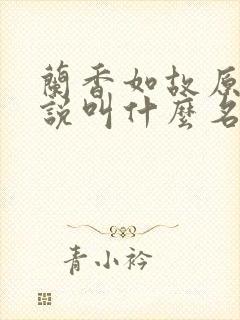 蘭香如故原
說叫什麼名
青小衿